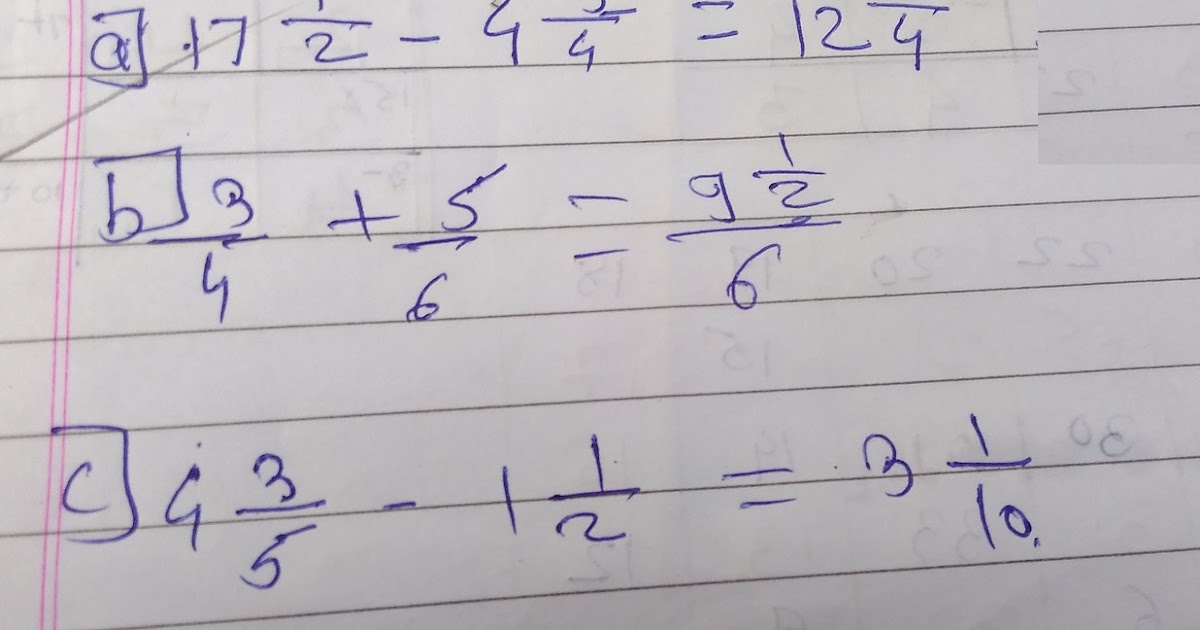 a] 17 1/2 - 4 /4 = 12 /4
b] 3/4 + 5/6 = 9 1/2/6
c] 4 3/5 - 1 1/2 = 3 1/10.